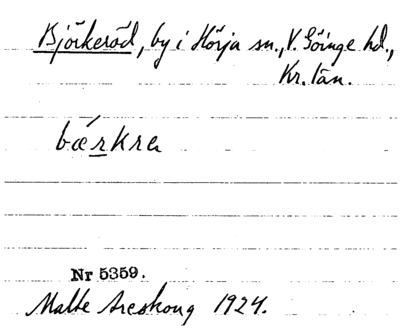 Björkeröd, by i Hörja sn., V. Göinge hd.,
Kr. län.
bǽrkra
Nr 5359.
Malte Areskoug 1924.